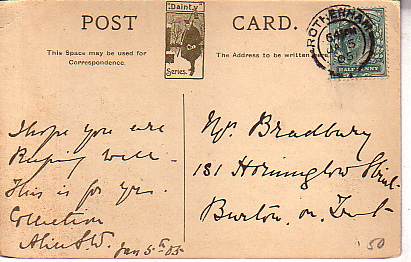 POST CARD.
"Dainty"
Series.
This Space may be used for
Correspondence.
The Address to be written
ROTHERHAM
6 PM
JA 5
05
HALFPENNY
I hope you are
Keeping well -
This is for yr.
Collection
Alice S.W. Jan 5th 05
Mr. Bradbury
181 Horninglow Street
Burton. on. Trent
50